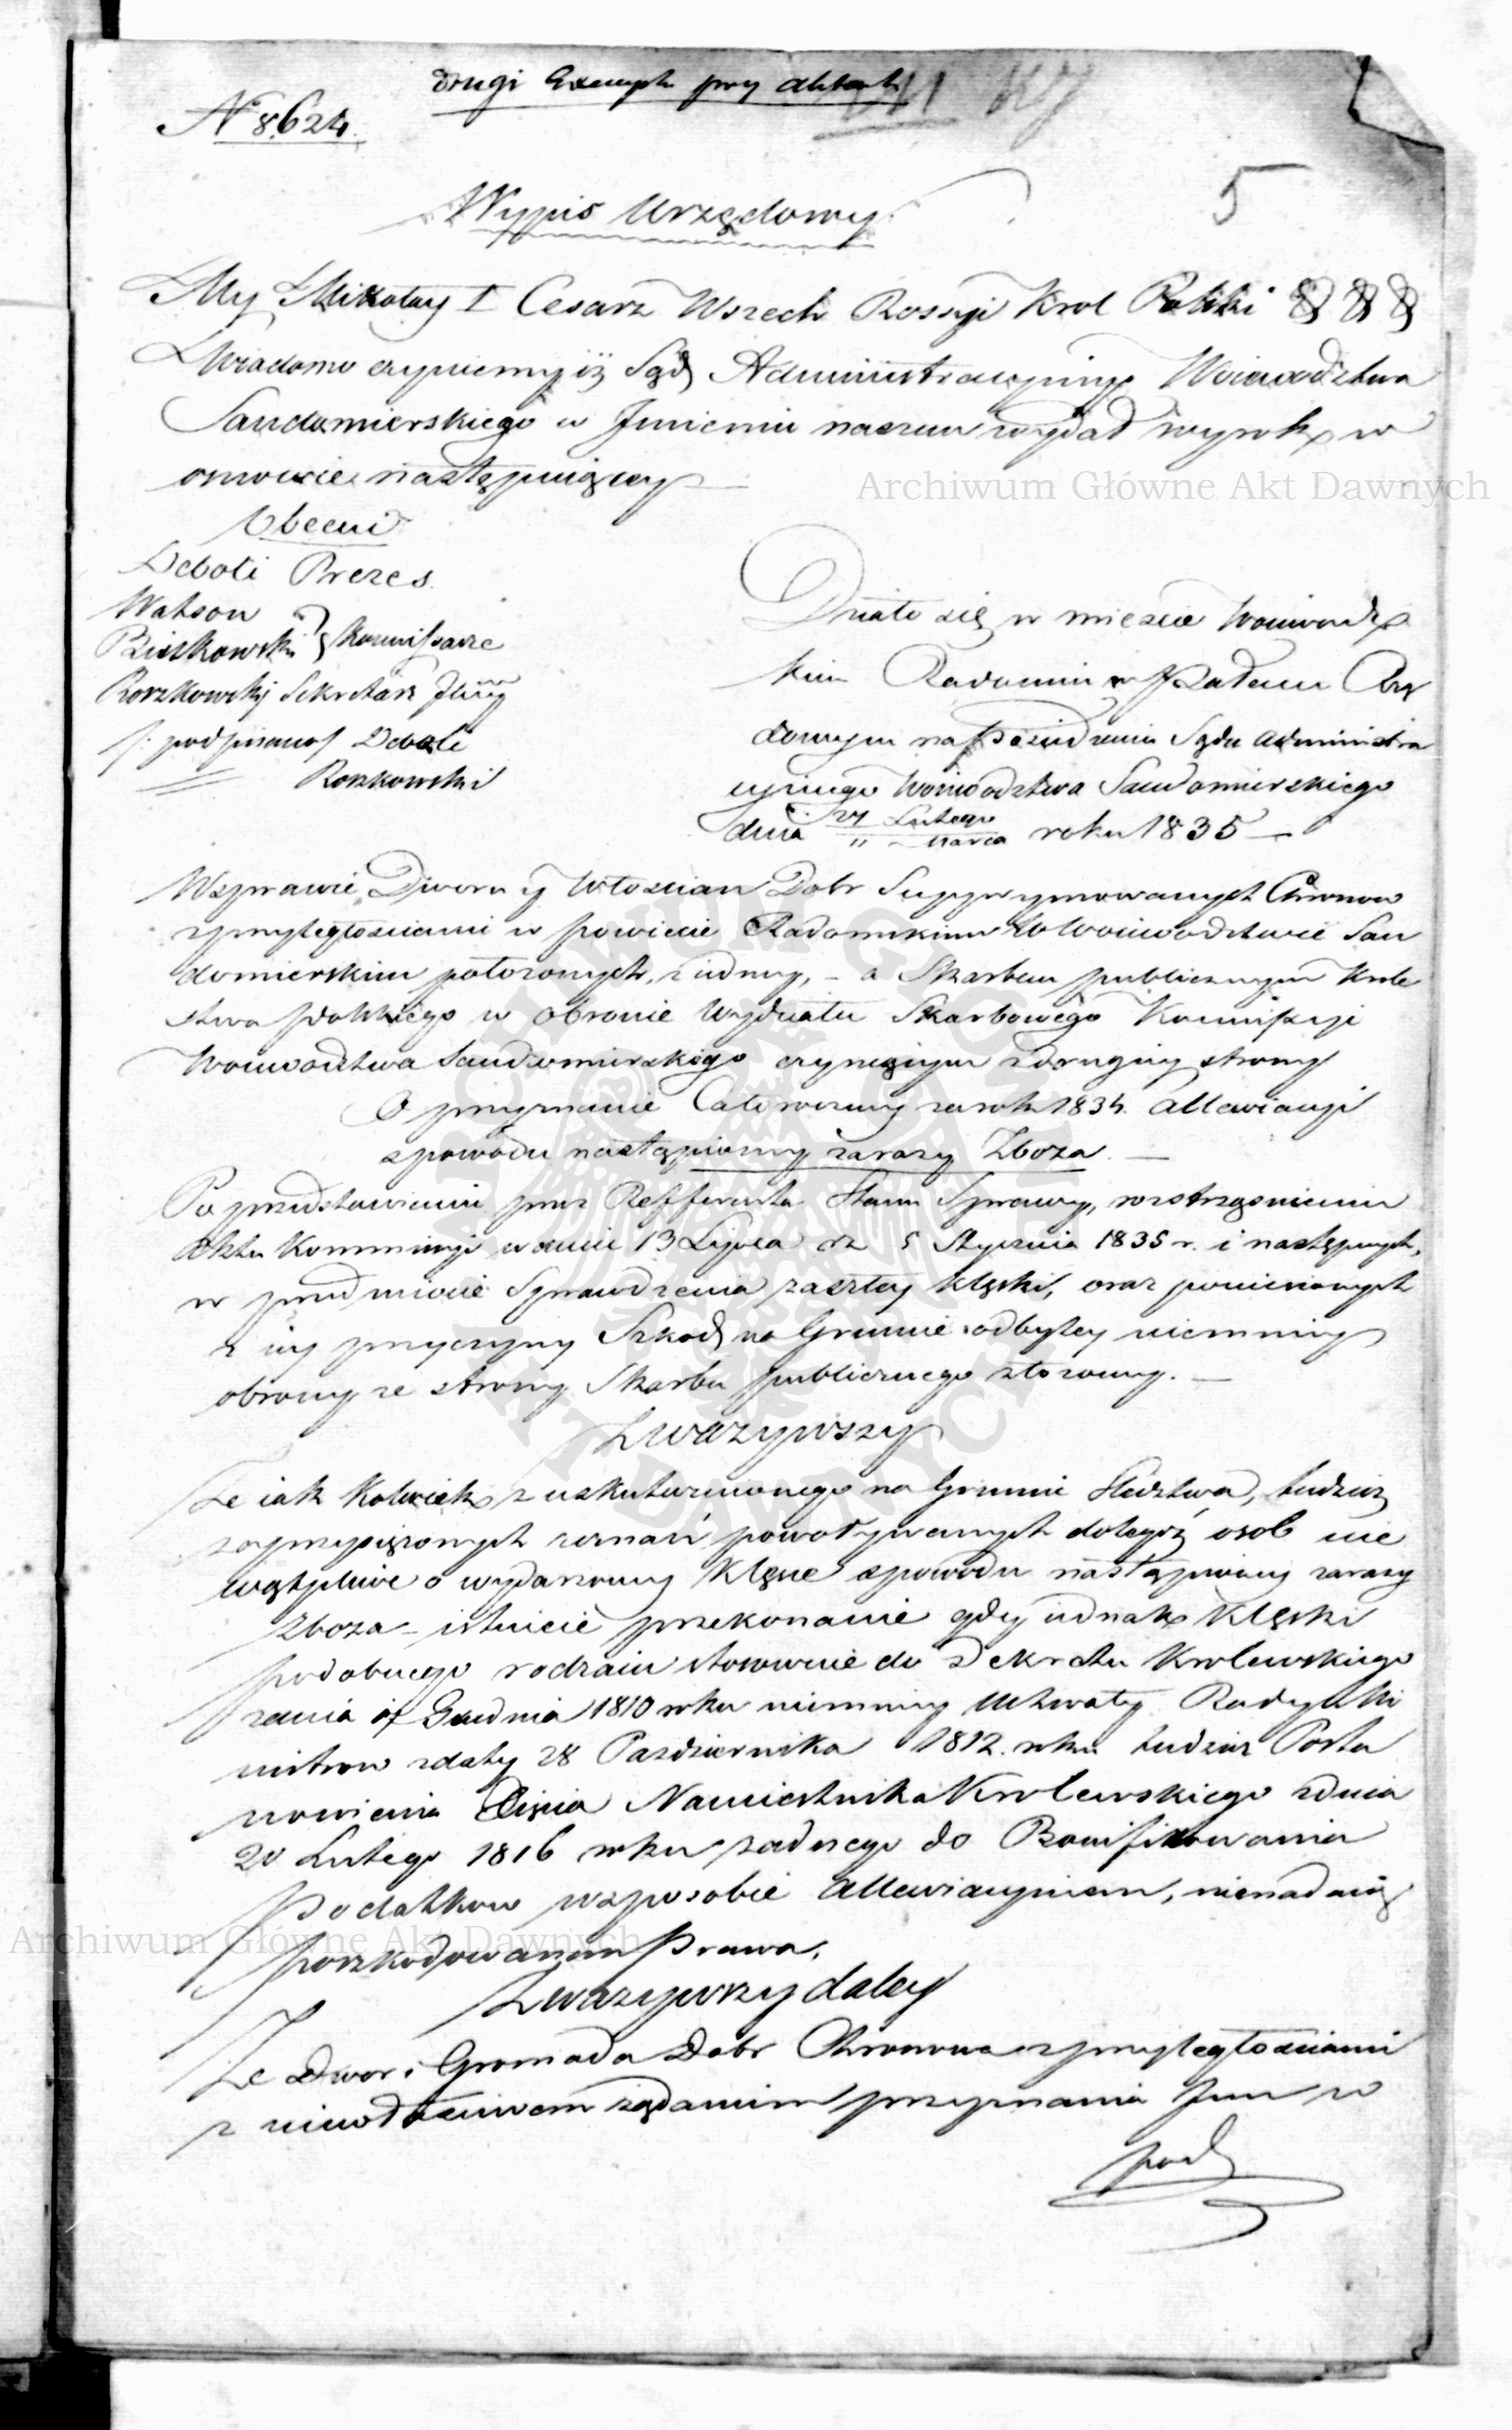 drugi Exempl. przy aktach
N 8624.
5
Wypis Urzędowy.
My Mikołay I Cesarz Wszech Rossyi Krol Polski
Wiadomo czyniemy iż Sąd Administracyiny Woiewodztwa
Sandomierskiego w Jmieniu naszem wydał wyrok w
osnowie następuiącey
Archiwum Główne Akt Dawnych
Obecni
Deboli Prezes
Watson
Kommissarze
Roszkowski Sekretarz
podpisano Deboli
Roszkowski
Działo się w mieście Woiewodz
kim Radomiu w Pałacu Rzą
dowym na Posiedzeniu Sądu Administra
cyinego Woiewodztwa Sandomierskiego
dnia 27 Lutego
11 Marca roku 1835
W sprawie Dworu y Włoscian Dobr Supprymowanych Chronow
z przyległosciami w powiecie Radomskim w Woiewodztwie San
domierskim położonych, z iedney, - a Skarbem publicznym Krole
stwa Polskiego w obronie Wydziału Skarbowego Kommissyi
Woiewodztwa Sandomierskiego czyniącym z drugiey strony
O przyznanie Całoroczney za rok 1834. Allewiacyi
z powodu nastąpioney zarazy Zboża.
Po przedstawieniu przez Refferenta Stanu Sprawy, roztrząsnieniu
Aktu Kommissyi w dniu 13 Lipca rz 5 Stycznia 1835 r. i następnych,
w przedmiocie Sprawdzenia zaszłey klęski, oraz poniesionych
z iey przyczyny Szkod, na Gruncie odbytey niemniey
obrony ze strony Skarbu publicznego złożoney.
Zważywszy
Że iak kolwiek z uskutecznionego na Gruncie Sledztwa, tudzież
zaprzysiężonych zeznań powoływanych do tegoż osob nie
wątpliwe o wydarzoney Klęsce z powodu nastąpioney zarazy
Zboża istnieie przekonanie gdy iednak Klęski
podobnego rodzaiu stosownie do Dekretu Krolewskiego
z dnia Grudnia 1810 roku niemniey Uchwały Rady Mi
nistrow z daty 28 Pazdziernika 1812. roku tudzież Posta
nowienia Xięcia Namiestnika Krolewskiego z dnia
20 Lutego 1816 roku żadnego do Bonifikowania
Podatkow w sposobie Allewiacyinem, nienadaią
Archiwum Główne Akt Dawnych
poszkodowanem Prawa,
Zważywszy daley
Że Dwor i Gromada Dobr Chronowa z przyległosciami
z niewłaściwem żądaniem przyznania Jm w
pod